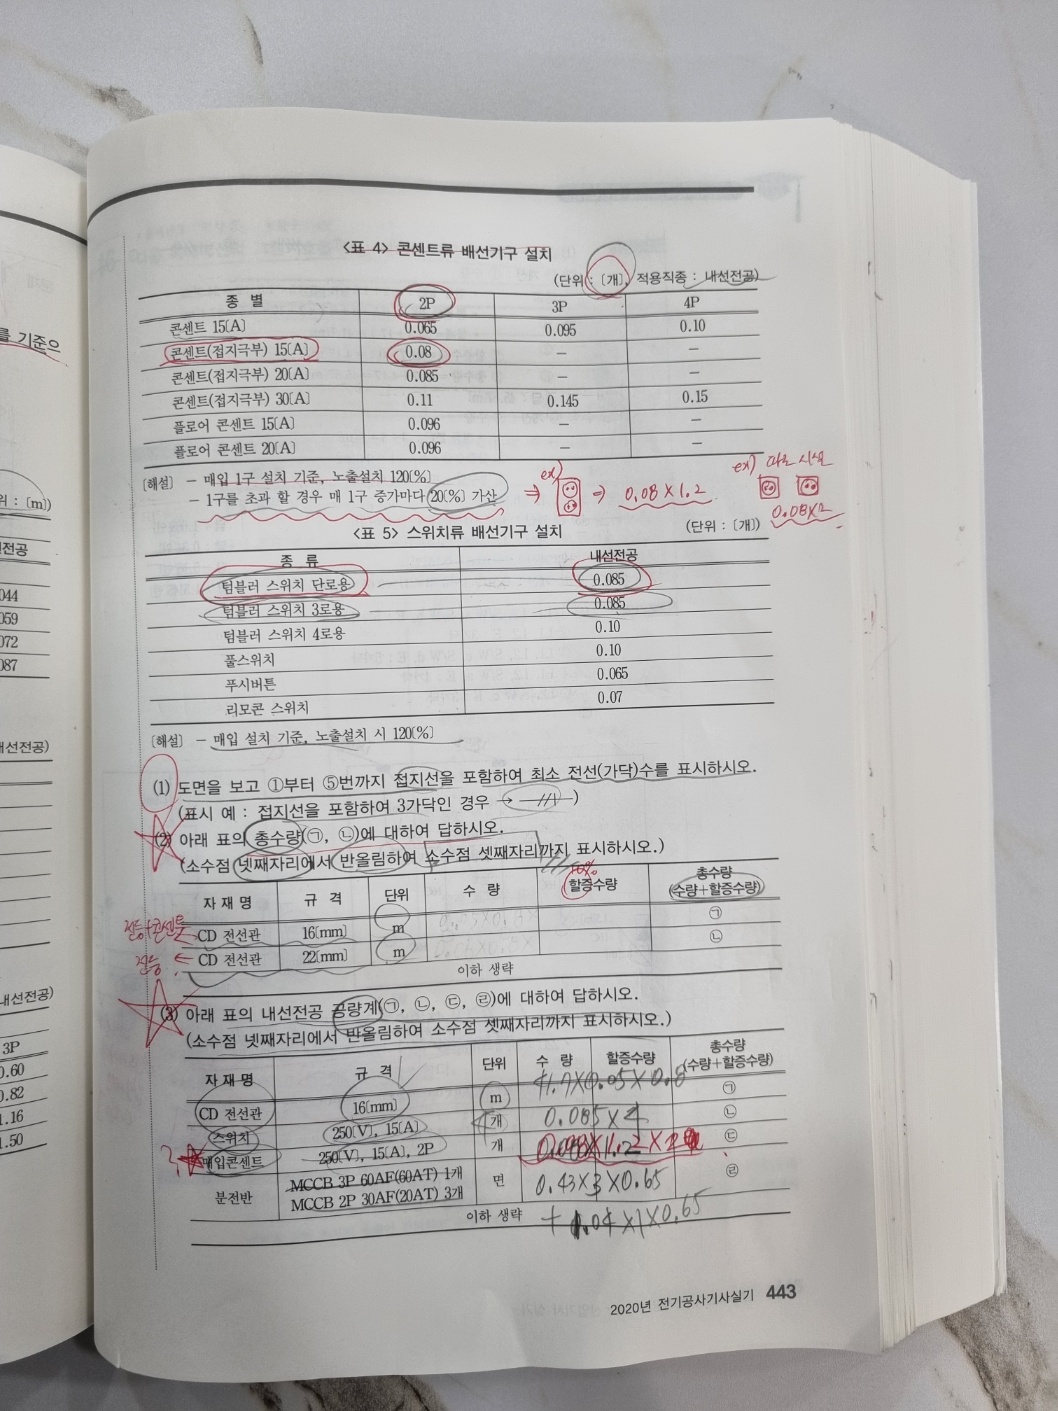 <표 4> 콘센트류 배선기구 설치
(단위 : [개], 적용직종 : 내선전공)
종 별 2P 3P 4P
콘센트 15[A] 0.065 0.095 0.10
콘센트(접지극부) 15[A] 0.08 － －
콘센트(접지극부) 20[A] 0.085 － －
콘센트(접지극부) 30[A] 0.11 0.145 0.15
플로어 콘센트 15[A] 0.096 － －
플로어 콘센트 20[A] 0.096 － －
[해설] － 매입 1구 설치 기준, 노출설치 120[%]
－ 1구를 초과 할 경우 매 1구 증가마다 20[%] 가산
ex) ⇒ ⇒ 0.08×1.2
ex) 따로 시설
0.08×2
<표 5> 스위치류 배선기구 설치
(단위 : [개])
종 류 내선전공
텀블러 스위치 단로용 0.085
텀블러 스위치 3로용 0.085
텀블러 스위치 4로용 0.10
풀스위치 0.10
푸시버튼 0.065
리모콘 스위치 0.07
[해설] － 매입 설치 기준, 노출설치 시 120[%]
(1) 도면을 보고 ①부터 ⑤번까지 접지선을 포함하여 최소 전선(가닥)수를 표시하시오.
(표시 예 : 접지선을 포함하여 3가닥인 경우 → )
(2) 아래 표의 총수량(㉠, ㉡)에 대하여 답하시오.
(소수점 넷째자리에서 반올림하여 소수점 셋째자리까지 표시하시오.)
자 재 명 규 격 단위 수 량 할증수량 총수량
(수량+할증수량)
CD 전선관 16[mm] m ㉠
CD 전선관 22[mm] m ㉡
이하 생략
전등+콘센트
전등
(3) 아래 표의 내선전공 공량계(㉠, ㉡, ㉢, ㉣)에 대하여 답하시오.
(소수점 넷째자리에서 반올림하여 소수점 셋째자리까지 표시하시오.)
자 재 명 규 격 단위 수 량 할증수량 총수량
(수량+할증수량)
CD 전선관 16[mm] m ㉠
스위치 250[V], 15[A] 개 0.085×4 ㉡
매입콘센트 250[V], 15[A], 2P 개 ㉢
분전반 MCCB 3P 60AF(60AT) 1개 면 0.43×3×0.65 ㉣
MCCB 2P 30AF(20AT) 3개
이하 생략
2020년 전기공사기사실기 443
를 기준으
위 : [m])
전공
044
059
072
087
내선전공)
내선전공)
3P
0.60
0.82
1.16
1.50